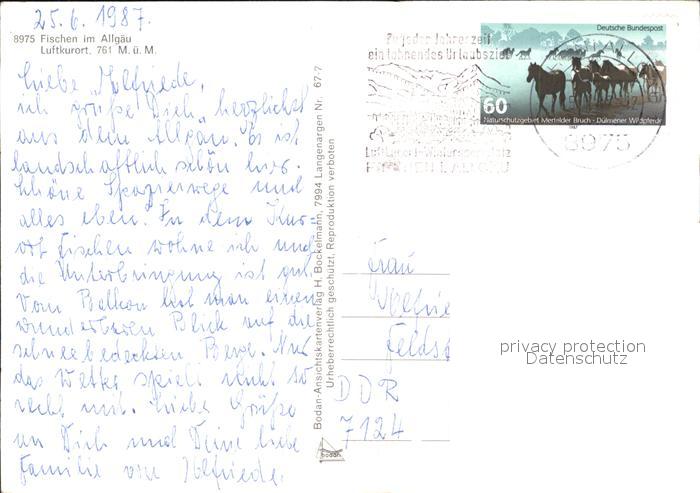 25.6.1987.
8975 Fischen im Allgäu
Luftkurort, 761 M. ü. M.
Liebe
ich grüße Dich herzlichst
aus dem Allgäu. Es ist
landschaftlich schön hier.
Schöne Spazierwege und
alles eben. In dem Kur=
ort Fischen wohne ich und
die Unterbringung ist gut.
Vom Balkon hat man einen
wunderbaren Blick auf die
schneebedeckten Berge. Nur
das Wetter spielt nicht so
recht mit. Liebe Grüße
an Dich und Deine liebe
Familie von
Bodan-Ansichtskartenverlag H. Bockelmann, 7994 Langenargen Nr. 67.7
Urheberrechtlich geschützt, Reproduktion verboten
bodan
Zu jeder Jahreszeit
ein lohnendes Urlaubsziel
Deutsche Bundespost
60
Naturschutzgebiet Merfelder Bruch - Dülmener Wildpferde
8975
Frau
DDR
7124
privacy protection
Datenschutz